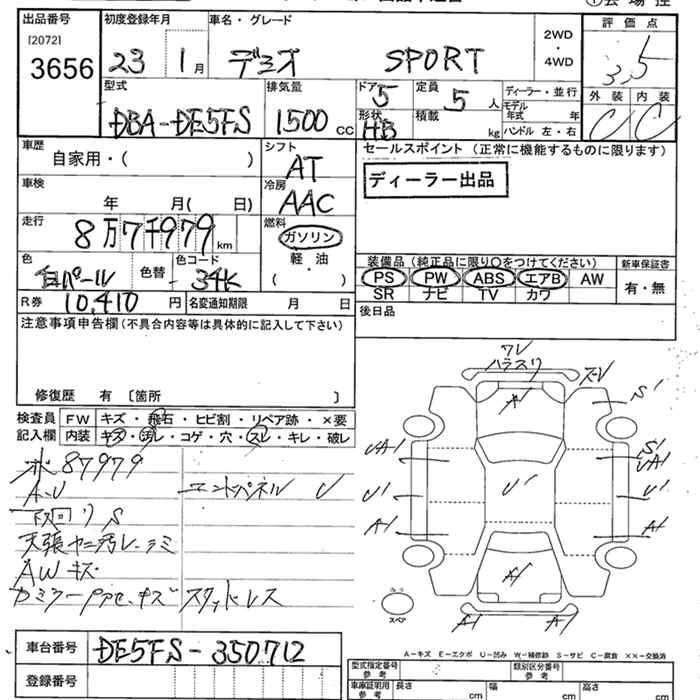 出品番号 初度登録年月 車名・グレード 2WD・4WD 評価点
[2072]
3656
23 1月 デミオ SPORT 3.5
型式 排気量 ドア 定員 ディーラー・並行 外装 内装
DBA-DE5FS 1500cc 5 5人 モデル年式 年 C C
形状 HB 積載 kg ハンドル 左・右
車歴 シフト セールスポイント (正常に機能するものに限ります)
自家用・( ) AT
ディーラー出品
車検 冷房
年 月( 日) AAC
走行 燃料
8万7千979km ガソリン
軽・油
( )
色 色替 色コード
白パール 34K
装備品 (純正品に限り〇をつけてください) 新車保証書
PS PW ABS エアB AW 有・無
SR ナビ TV カワ
R券 10,410円 名変通知期限 月 日
後日品
注意事項申告欄(不具合内容等は具体的に記入して下さい)
修復歴 有 〔箇所 〕
検査員 FW キズ・飛石・ヒビ割・リペア跡・×要
記入欄 内装 キズ・汚レ・コゲ・穴・スレ・キレ・破レ
87979
A・U エンドパネル U
下回りS
天張ヤニ汚レ・シミ
AWキズ
スタッドレス
ワレ
S1
S1
UA1 UA1
U1 U U1
A1 A1
スペア
A1 A1
A-キズ E-エクボ U-凹み W-補修跡 S-サビ C-腐食 ××-交換済
車台番号 DE5FS-350712
登録番号
型式指定番号 参考 類別区分番号 参考
車庫証明用 参考 長さ cm 幅 cm 高さ cm